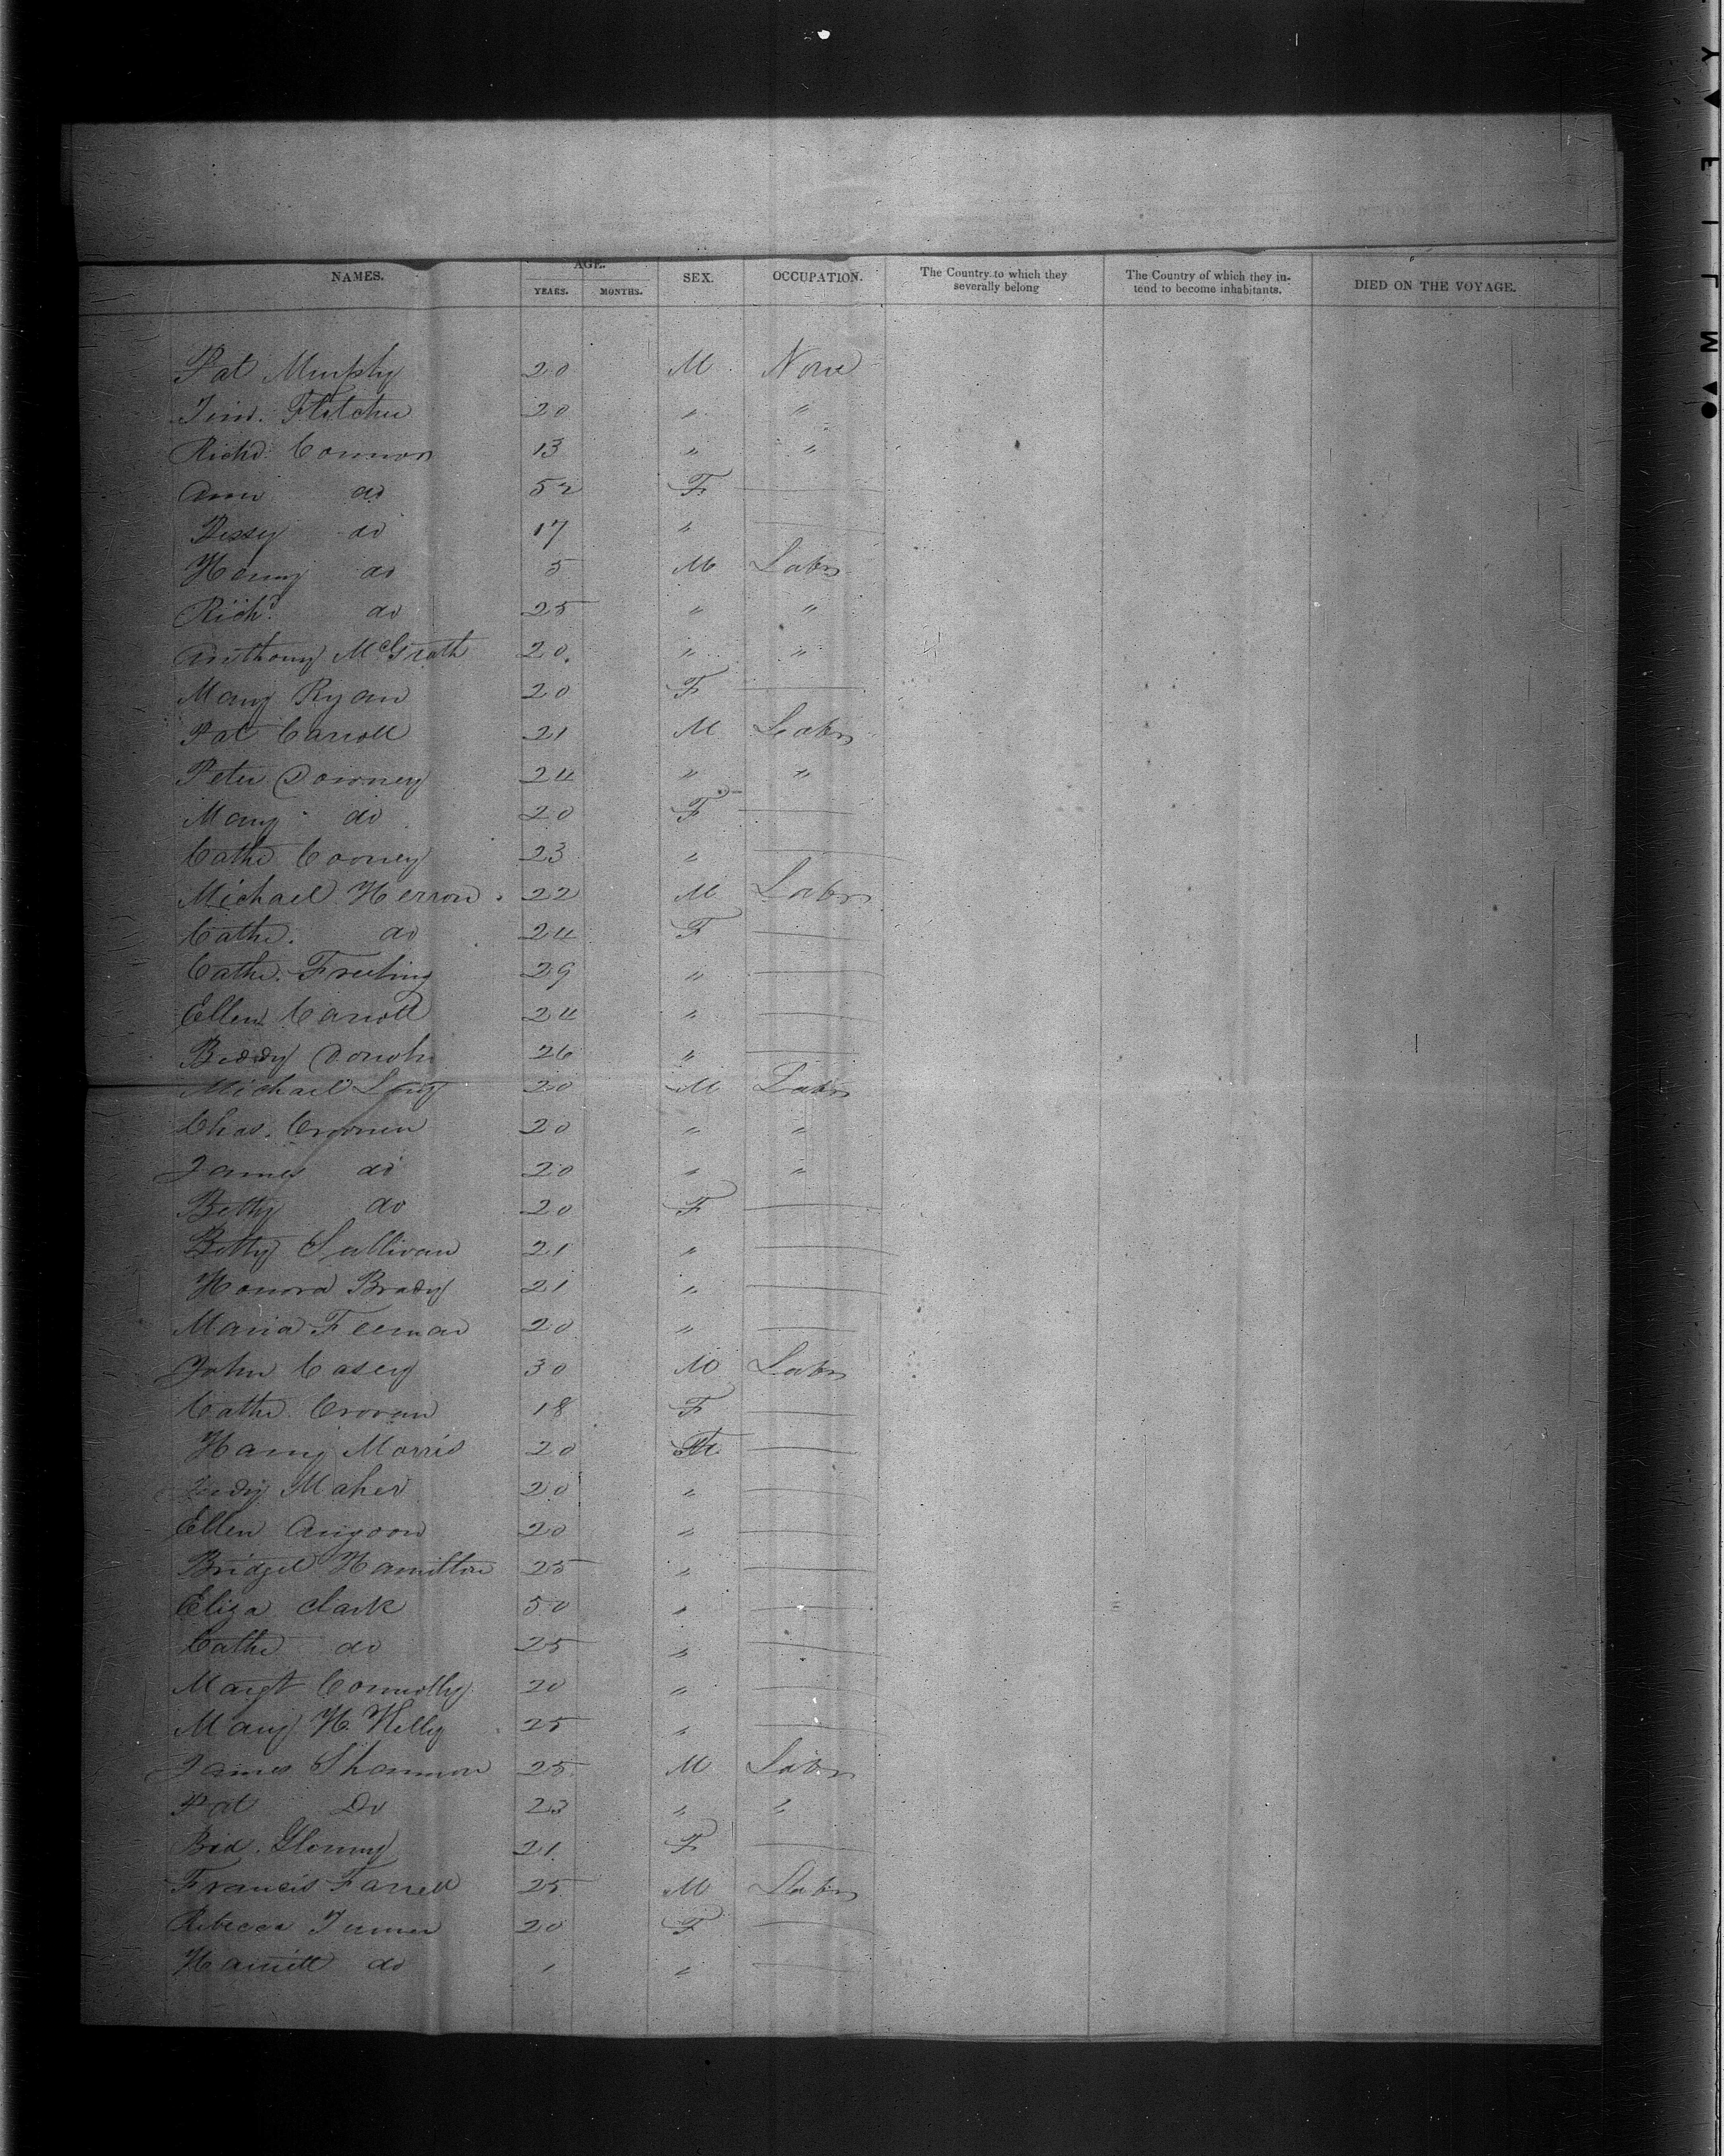 NAMES. AGE. SEX. OCCUPATION. The Country to which they severally belong The Country of which they intend to become inhabitants. DIED ON THE VOYAGE.
YEARS. MONTHS.
Pat Murphy 20 M None
Jim. Flitcher 20 " "
Richd. Connor 13 " "
Ann do 52 F
Bessy do 17 "
Henry do 5 M Labr
Richd. do 25 " "
Anthony McGrath 20. " "
Mary Ryan 20 F
Pat Carroll 21 M Labr
Peter Downey 24 " "
Mary do 20 F
Cathe Cooney 23 "
Michael Herron 22 M Labr
Cathe. do 24 F
Cathe. Freeling 29 "
Ellen Carroll 24 "
Biddy Donoh 26 "
Michael Long 20 M Labr
Chas. Cronnen 20 " "
James do 20 " "
Betty do 20 F
Betty Sullivan 21 "
Honora Brady 21 "
Maria Feeman 20 "
John Casey 30 M Labr
Cathe Cronen 18 F
Harry Morris 20
Judy Maher 20 "
Ellen 20 "
Bridget Hamilton 25 "
Eliza Clark 50 "
Cathe do 25 "
Margt Connolly 20 "
Mary H. Kelly 25 "
James Shannon 25 M Labr
Pat Do 23 " "
Bid. 21 F
Francis Farrell 25 M Labr
Rebecca Turner 20 F
Harriett do 1 "